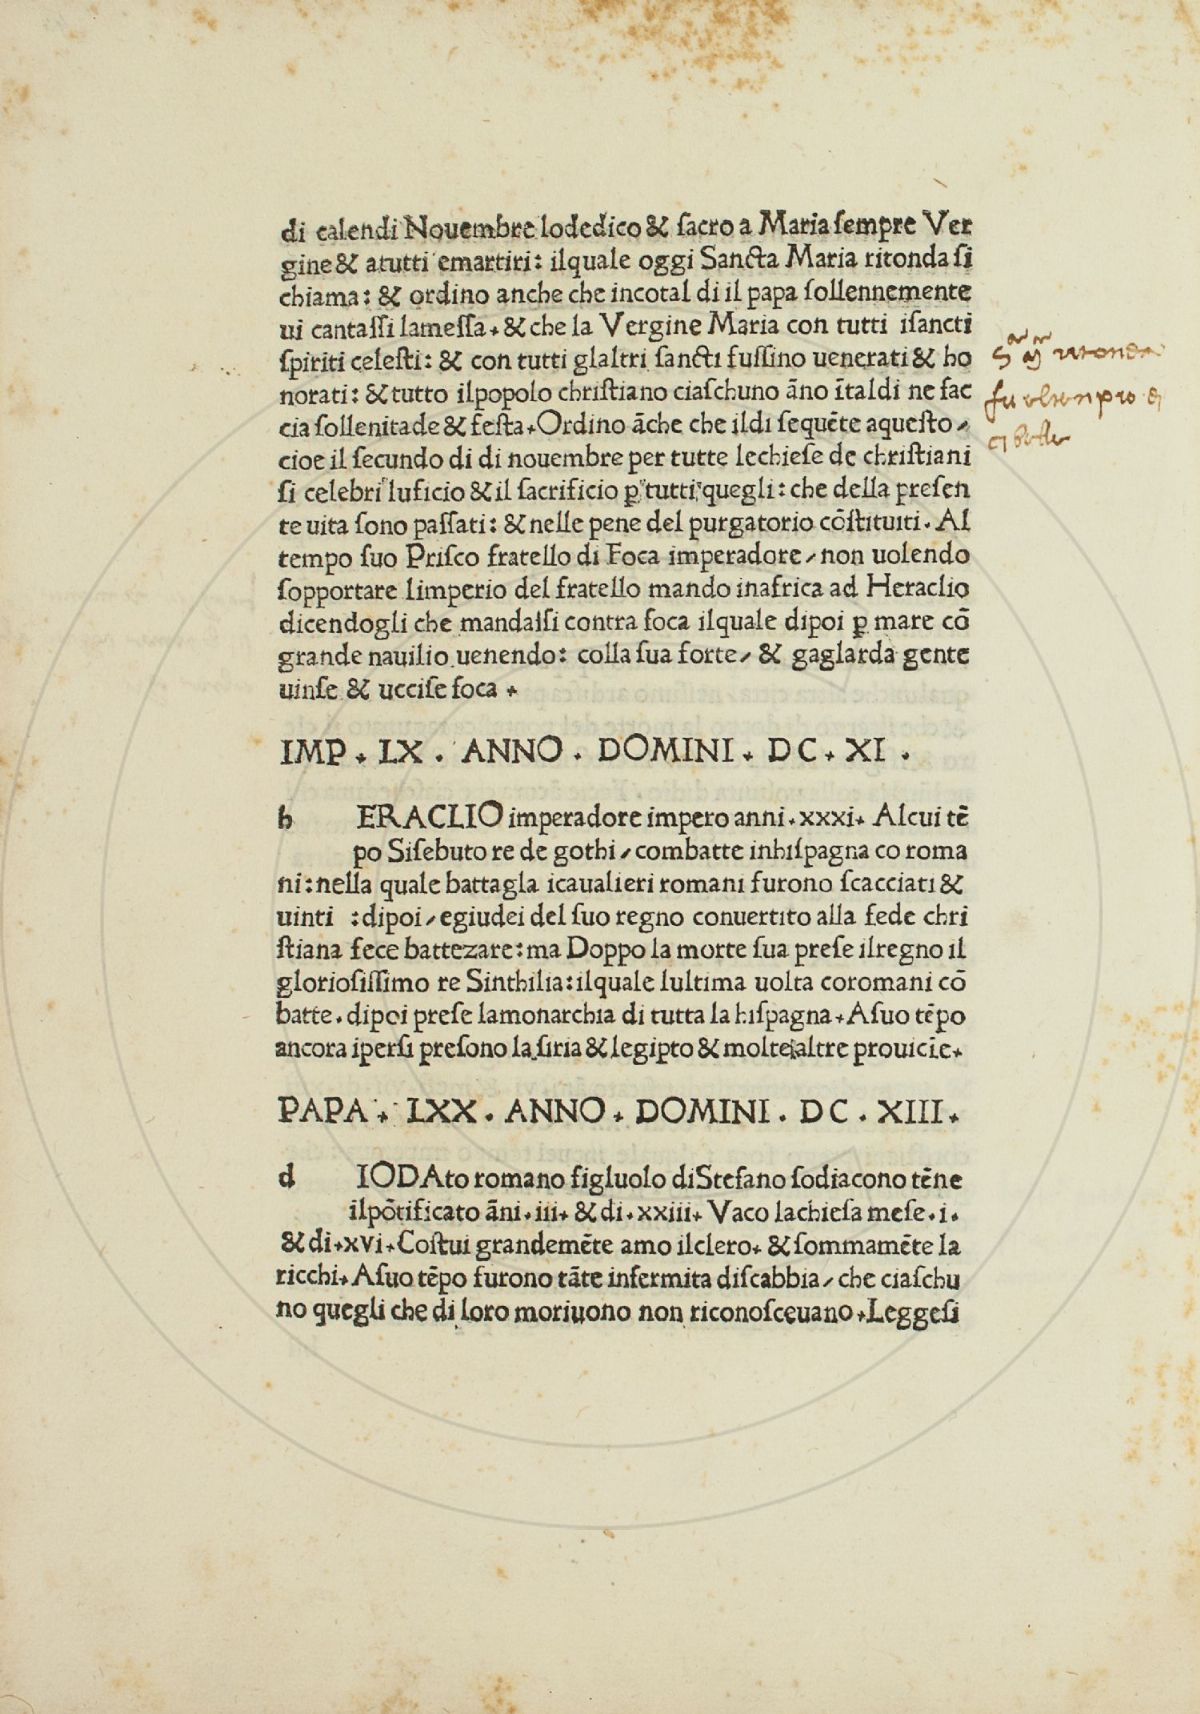 di calendi Nouembre lodedico & ſacro a Maria ſempre Ver
gine & atutti emartiri: ilquale oggi Sancta Maria ritonda ſi
chiama: & ordino anche che incotal di il papa ſollennemente
ui cantaſſi lameſſa. & che la Vergine Maria con tutti iſancti
ſpiriti celeſti: & con tutti glaltri ſancti fuſſino uenerati & ho
norati: & tutto ilpopolo chriſtiano ciaſchuno āno ītaldi ne fac
cia ſollenitade & feſta. Ordino āche che ildi ſequēte aqueſto /
cioe il ſecundo di di nouembre per tutte lechieſe de chriſtiani
ſi celebri luficio & il ſacrificio ꝑ tutti quegli: che della preſen
te uita ſono paſſati: & nelle pene del purgatorio cōſtituiti. Al
tempo ſuo Priſco fratello di Foca imperadore / non uolendo
ſopportare limperio del fratello mando inafrica ad Heraclio
dicendogli che mandaſſi contra foca ilquale dipoi ꝑ mare cō
grande nauilio uenendo: colla ſua forte / & gaglarda gente
uinſe & ucciſe foca .
IMP . LX . ANNO . DOMINI . DC . XI .
h ERACLIO imperadore impero anni . xxxi . Alcui tē
po Siſebuto re de gothi / combatte inhiſpagna co roma
ni: nella quale battagla icaualieri romani furono ſcacciati &
uinti : dipoi / egiudei del ſuo regno conuertito alla fede chri
ſtiana fece battezare: ma Doppo la morte ſua preſe ilregno il
glorioſiſſimo re Sinthilia: ilquale lultima uolta coromani cō
batte. dipoi preſe lamonarchia di tutta la hiſpagna. Aſuo tēpo
ancora iperſi preſono la ſiria & legipto & molte altre prouicīe.
PAPA . LXX . ANNO . DOMINI . DC . XIII .
d IODAto romano figluolo di Stefano ſodiacono tēne
ilpōtificato āni . iii . & di . xxiii . Vaco lachieſa meſe . i .
& di . xvi . Coſtui grandemēte amo ilclero. & ſommamēte la
ricchi. Aſuo tēpo furono tāte infermita diſcabbia / che ciaſchu
no quegli che di loro moriuono non riconoſceuano. Leggeſi
ritonda
fu